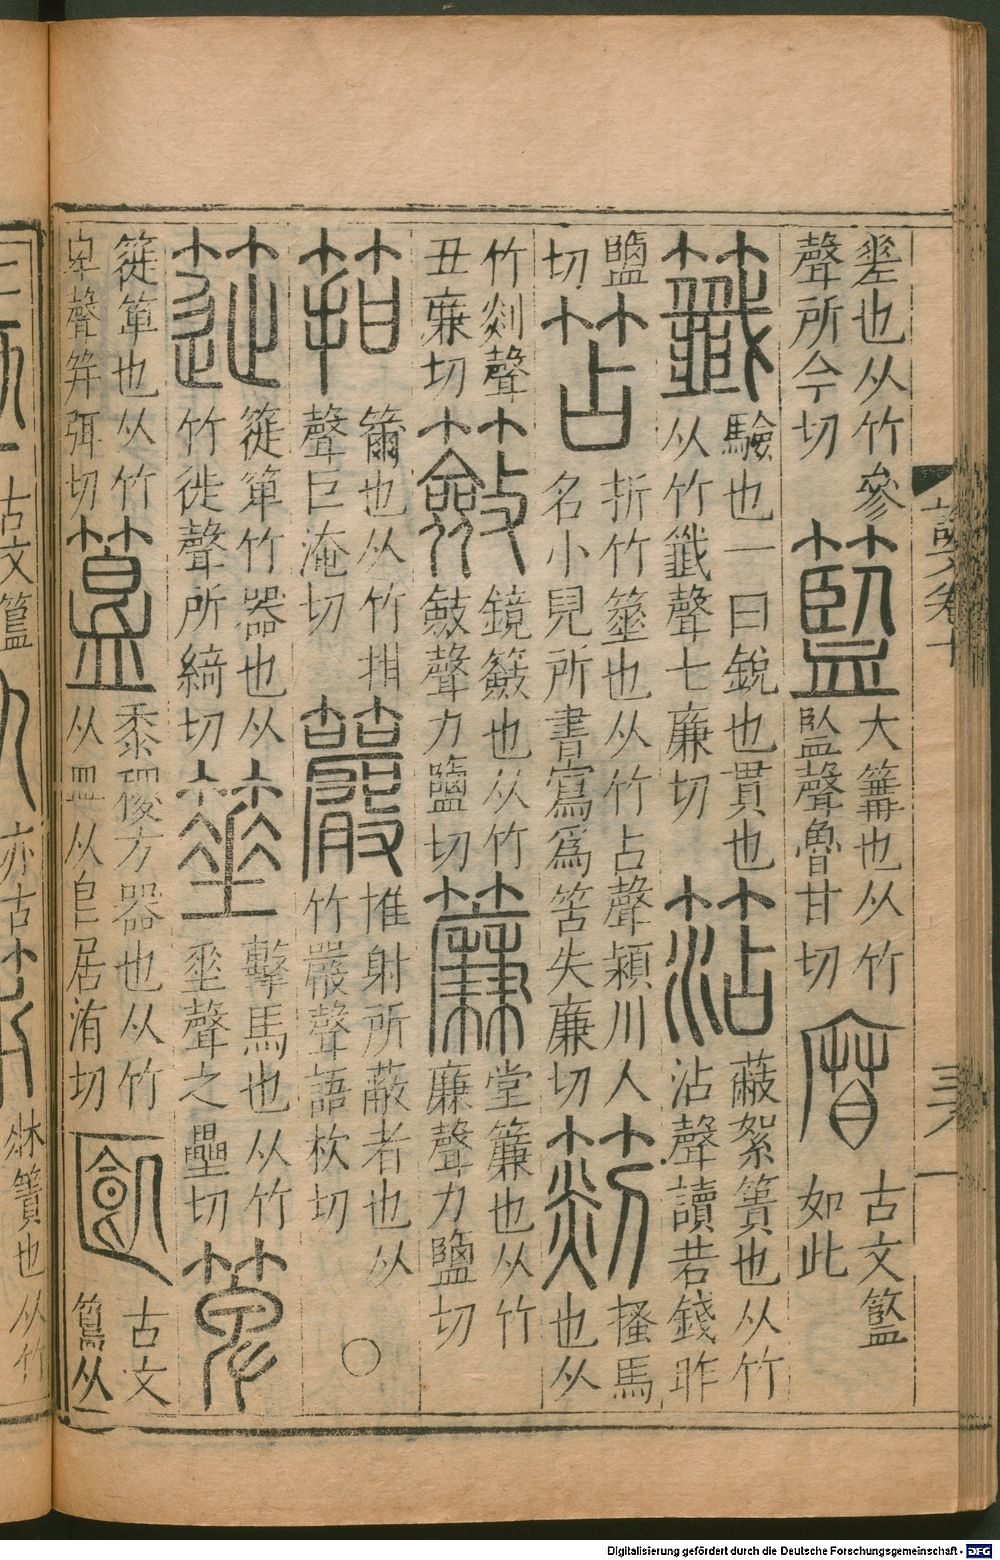 差也从竹參
聲所今切
籃
大篝也从竹
監聲魯甘切
古文籃
如此
籤
驗也一曰銳也貫也
从竹韱聲七廉切
蔽絮簀也从竹
沾聲讀若錢昨
鹽
切
笘
折竹箠也从竹占聲潁川人
名小兒所書寫爲笘失廉切
搔馬
也从
竹剡聲
丑廉切
籢
鏡籢也从竹
斂聲力鹽切
簾
堂簾也从竹
廉聲力鹽切
箝
籋也从竹拑
聲巨淹切
惟射所蔽者也从
竹嚴聲語杴切
○
簁
簁箄竹器也从
竹徙聲所綺切
箠
擊馬也从竹
垂聲之壘切
箄
簁箄也从竹
卑聲并弭切
簋
黍稷方器也从竹
从皿从皀居洧切
古文
簋从
說文卷十
古文簋
亦古
牀簀也从竹
Digitalisierung gefördert durch die Deutsche Forschungsgemeinschaft - DFG